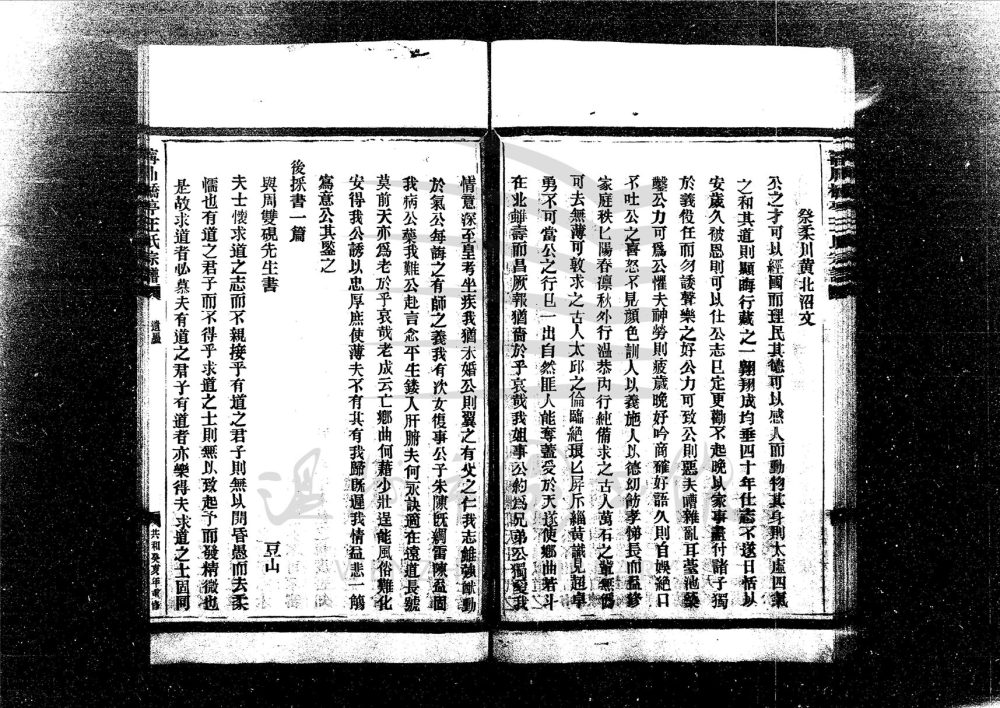 祭柔川黃北沼文
公之才可以經國而理民其德可以感人而動物其身則太虛四氣
之和其道則顯晦行藏之一翱翔成均垂四十年仕志不遂日恬以
安歲久被恩則可以仕公志已定更勸不起晚以家事盡付諸子獨
於義役任而勿諼聲樂之好公力可致公則惡夫嘈雜亂耳臺池
鑿公力可為公懼夫神勞則疲歲晚好吟商確好語久則自娛絕口
不吐公之喜怒不見顏色訓人以義施人以德幼飭孝悌長而益修
家庭秩匕陽春凛秋外行溫恭內行純備求之古人萬石之
可去無薄可敦求之古人太邱之倫臨絕琅匕屏斥緇黃識見超卓
勇不可當公之行已一出自然匪人能奪蓋爰於天遂使鄉曲若斗
在北雖壽而昌厥報猶嗇於乎哀哉我姐事公約為兄弟公獨愛我
情意深至皇考坐疾我猶未婚公則翼之有父之仁我志雖強猷動
於氣公每誨之有師之義我有次女復事公子朱陳既綢雷陳益固
我病公藥我難公赴言念平生鏤人肝腑夫何永訣適在遠道長號
莫前天亦為老於乎哀哉老成云亡鄉曲何藉少壯逞能風俗難化
安得我公誘以忠厚庶使薄夫不有其有我歸既遲我情益悲一觴
寫意公其鑒之
後採書一篇
與周雙硯先生書
豆山
夫士懷求道之志而不親接乎有道之君子則無以開昏愚而去柔
懦也有道之君子而不得乎求道之士則無以致起予而發精微也
是故求道者必慕夫有道之君子有道者亦樂得夫求道之士固
橋亭王氏宗譜
遺風
共和癸亥年重修